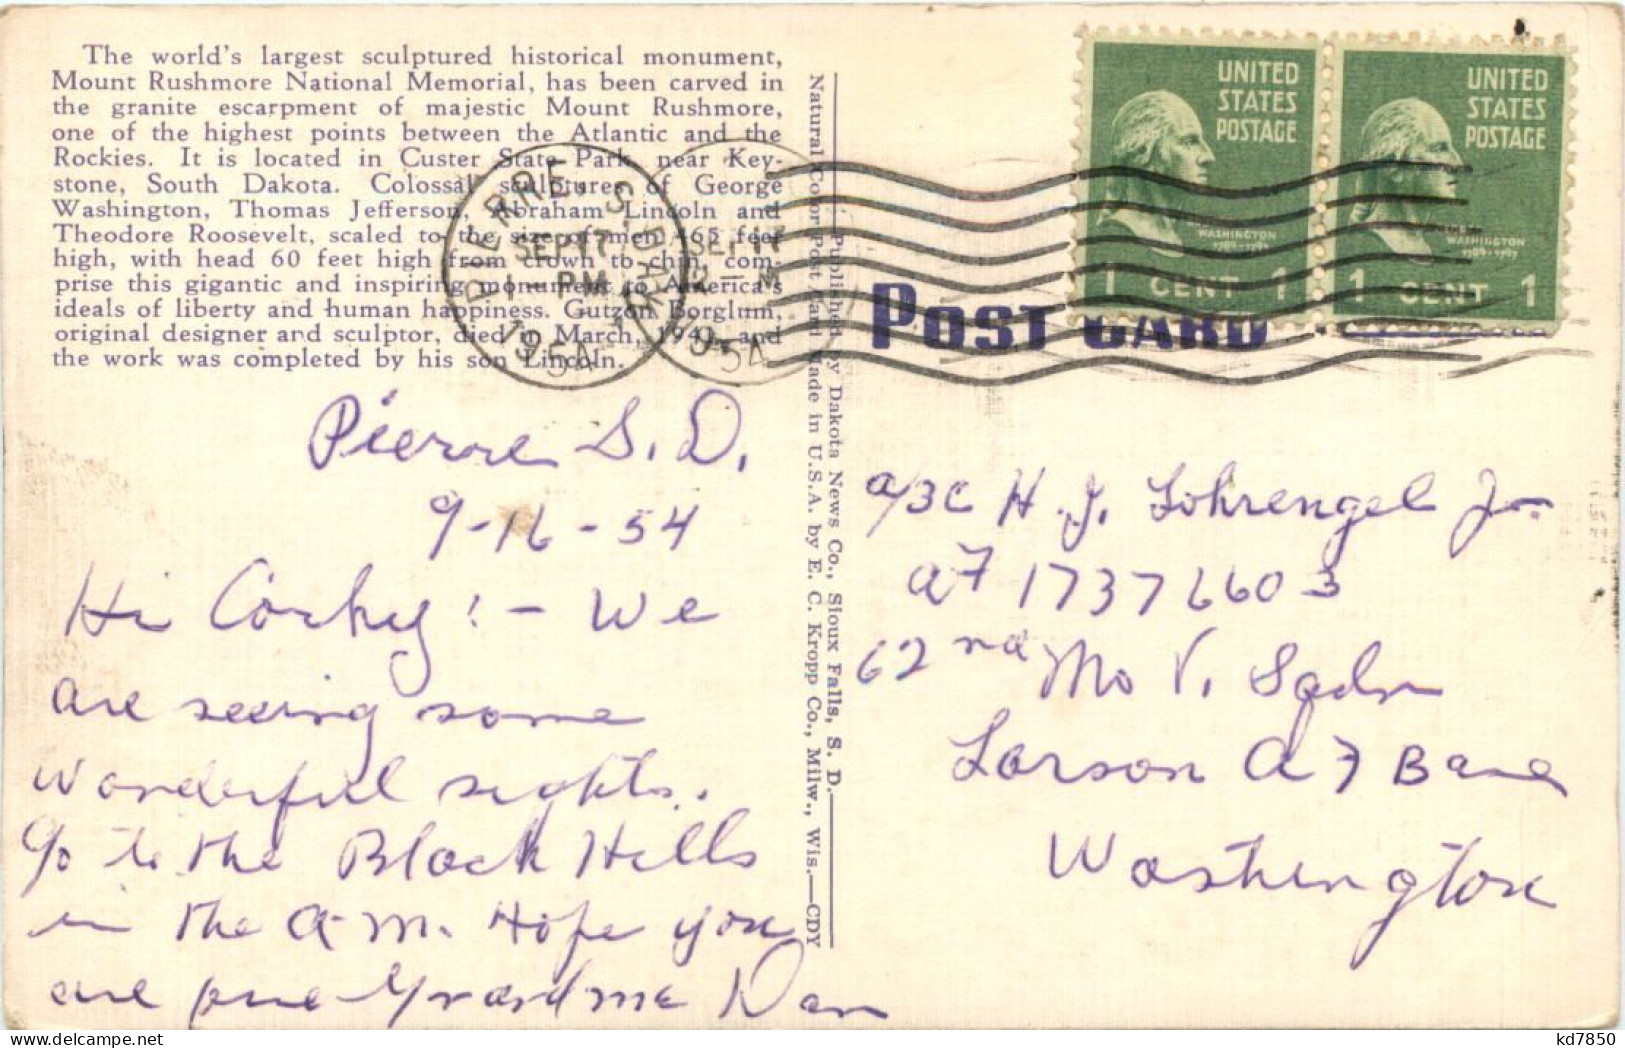 The world's largest sculptured historical monument,
Mount Rushmore National Memorial, has been carved in
the granite escarpment of majestic Mount Rushmore,
one of the highest points between the Atlantic and the
Rockies. It is located in Custer State Park, near Key-
stone, South Dakota. Colossal sculptures of George
Washington, Thomas Jefferson, Abraham Lincoln and
Theodore Roosevelt, scaled to the size of men 465 feet
high, with head 60 feet high from crown to chin, com-
prise this gigantic and inspiring monument to America's
ideals of liberty and human happiness. Gutzon Borglum,
original designer and sculptor, died in March, 1941, and
the work was completed by his son Lincoln.
PIERRE, S. DAK
SEP 17
1 - PM
1954
1954
Pierre S. D.
9-16-54
Hi Corky! - We
are seeing some
wonderful sights.
Go to the Black Hills
in the A-M. Hope you
are fine - Grandma
Published by Dakota News Co., Sioux Falls, S. D.
Natural Color Post Card Made in U.S.A. by E. C. Kropp Co., Milw., Wis.—CDY
UNITED
STATES
POSTAGE
WASHINGTON
1789-1797
1 CENT 1
UNITED
STATES
POSTAGE
WASHINGTON
1789-1797
1 CENT 1
POST CARD
A/3C H. J. Lohrengel Jr
AF 17376603
62nd Mo V. Sqdn
Larson AF Base
Washington
kd7850